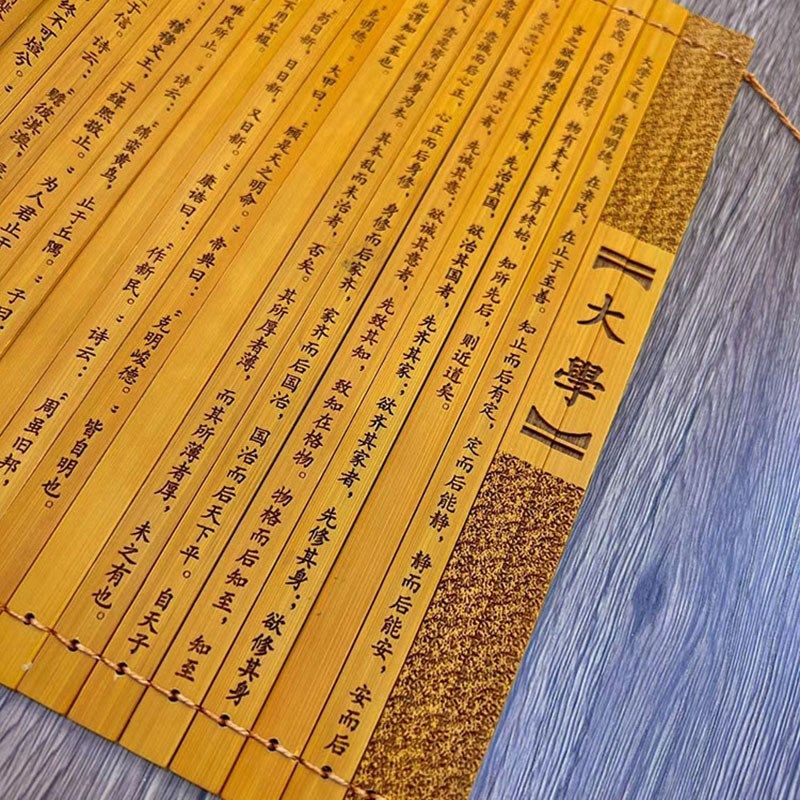 大學
大学之道，在明明德，在亲民，在止于至善。知止而后有定，定而后能静，静而后能安，安而后
能虑，虑而后能得。物有本末，事有终始，知所先后，则近道矣。
古之欲明明德于天下者，先治其国，欲治其国者，先齐其家；欲齐其家者，先修其身；欲修其身
者，先正其心；欲正其心者，先诚其意；欲诚其意者，先致其知，致知在格物。物格而后知至，知至
意诚，意诚而后心正，心正而后身修，身修而后家齐，家齐而后国治，国治而后天下平。自天子
人，壹是皆以修身为本。其本乱而末治者，否矣。其所厚者薄，而其所薄者厚，未之有也。
谓知之至也。
克明德。”大甲曰：“顾是天之明命。”帝典曰：“克明峻德。”皆自明也。
苟日新，日日新，又日新。”康诰曰：“作新民。”诗云：“周虽旧邦，
不用其极。
唯民所止。”诗云：“绵蛮黄鸟，止于丘隅。”子曰：
诗云：“穆穆文王，于缉熙敬止。”为人君止于
于信。诗云：“瞻彼淇澳，
终不可煊兮。